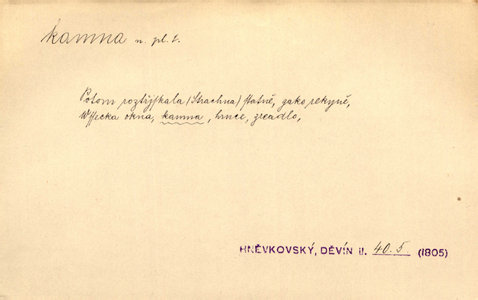 kamna n. pl. t.
Potom roztřjskala (Strachna) statně, gako rekyně,
Wssecka okna, kamna, hrnce, zrcadlo,
HNĚVKOVSKÝ, DĚVÍN II. 40.5 (1805)